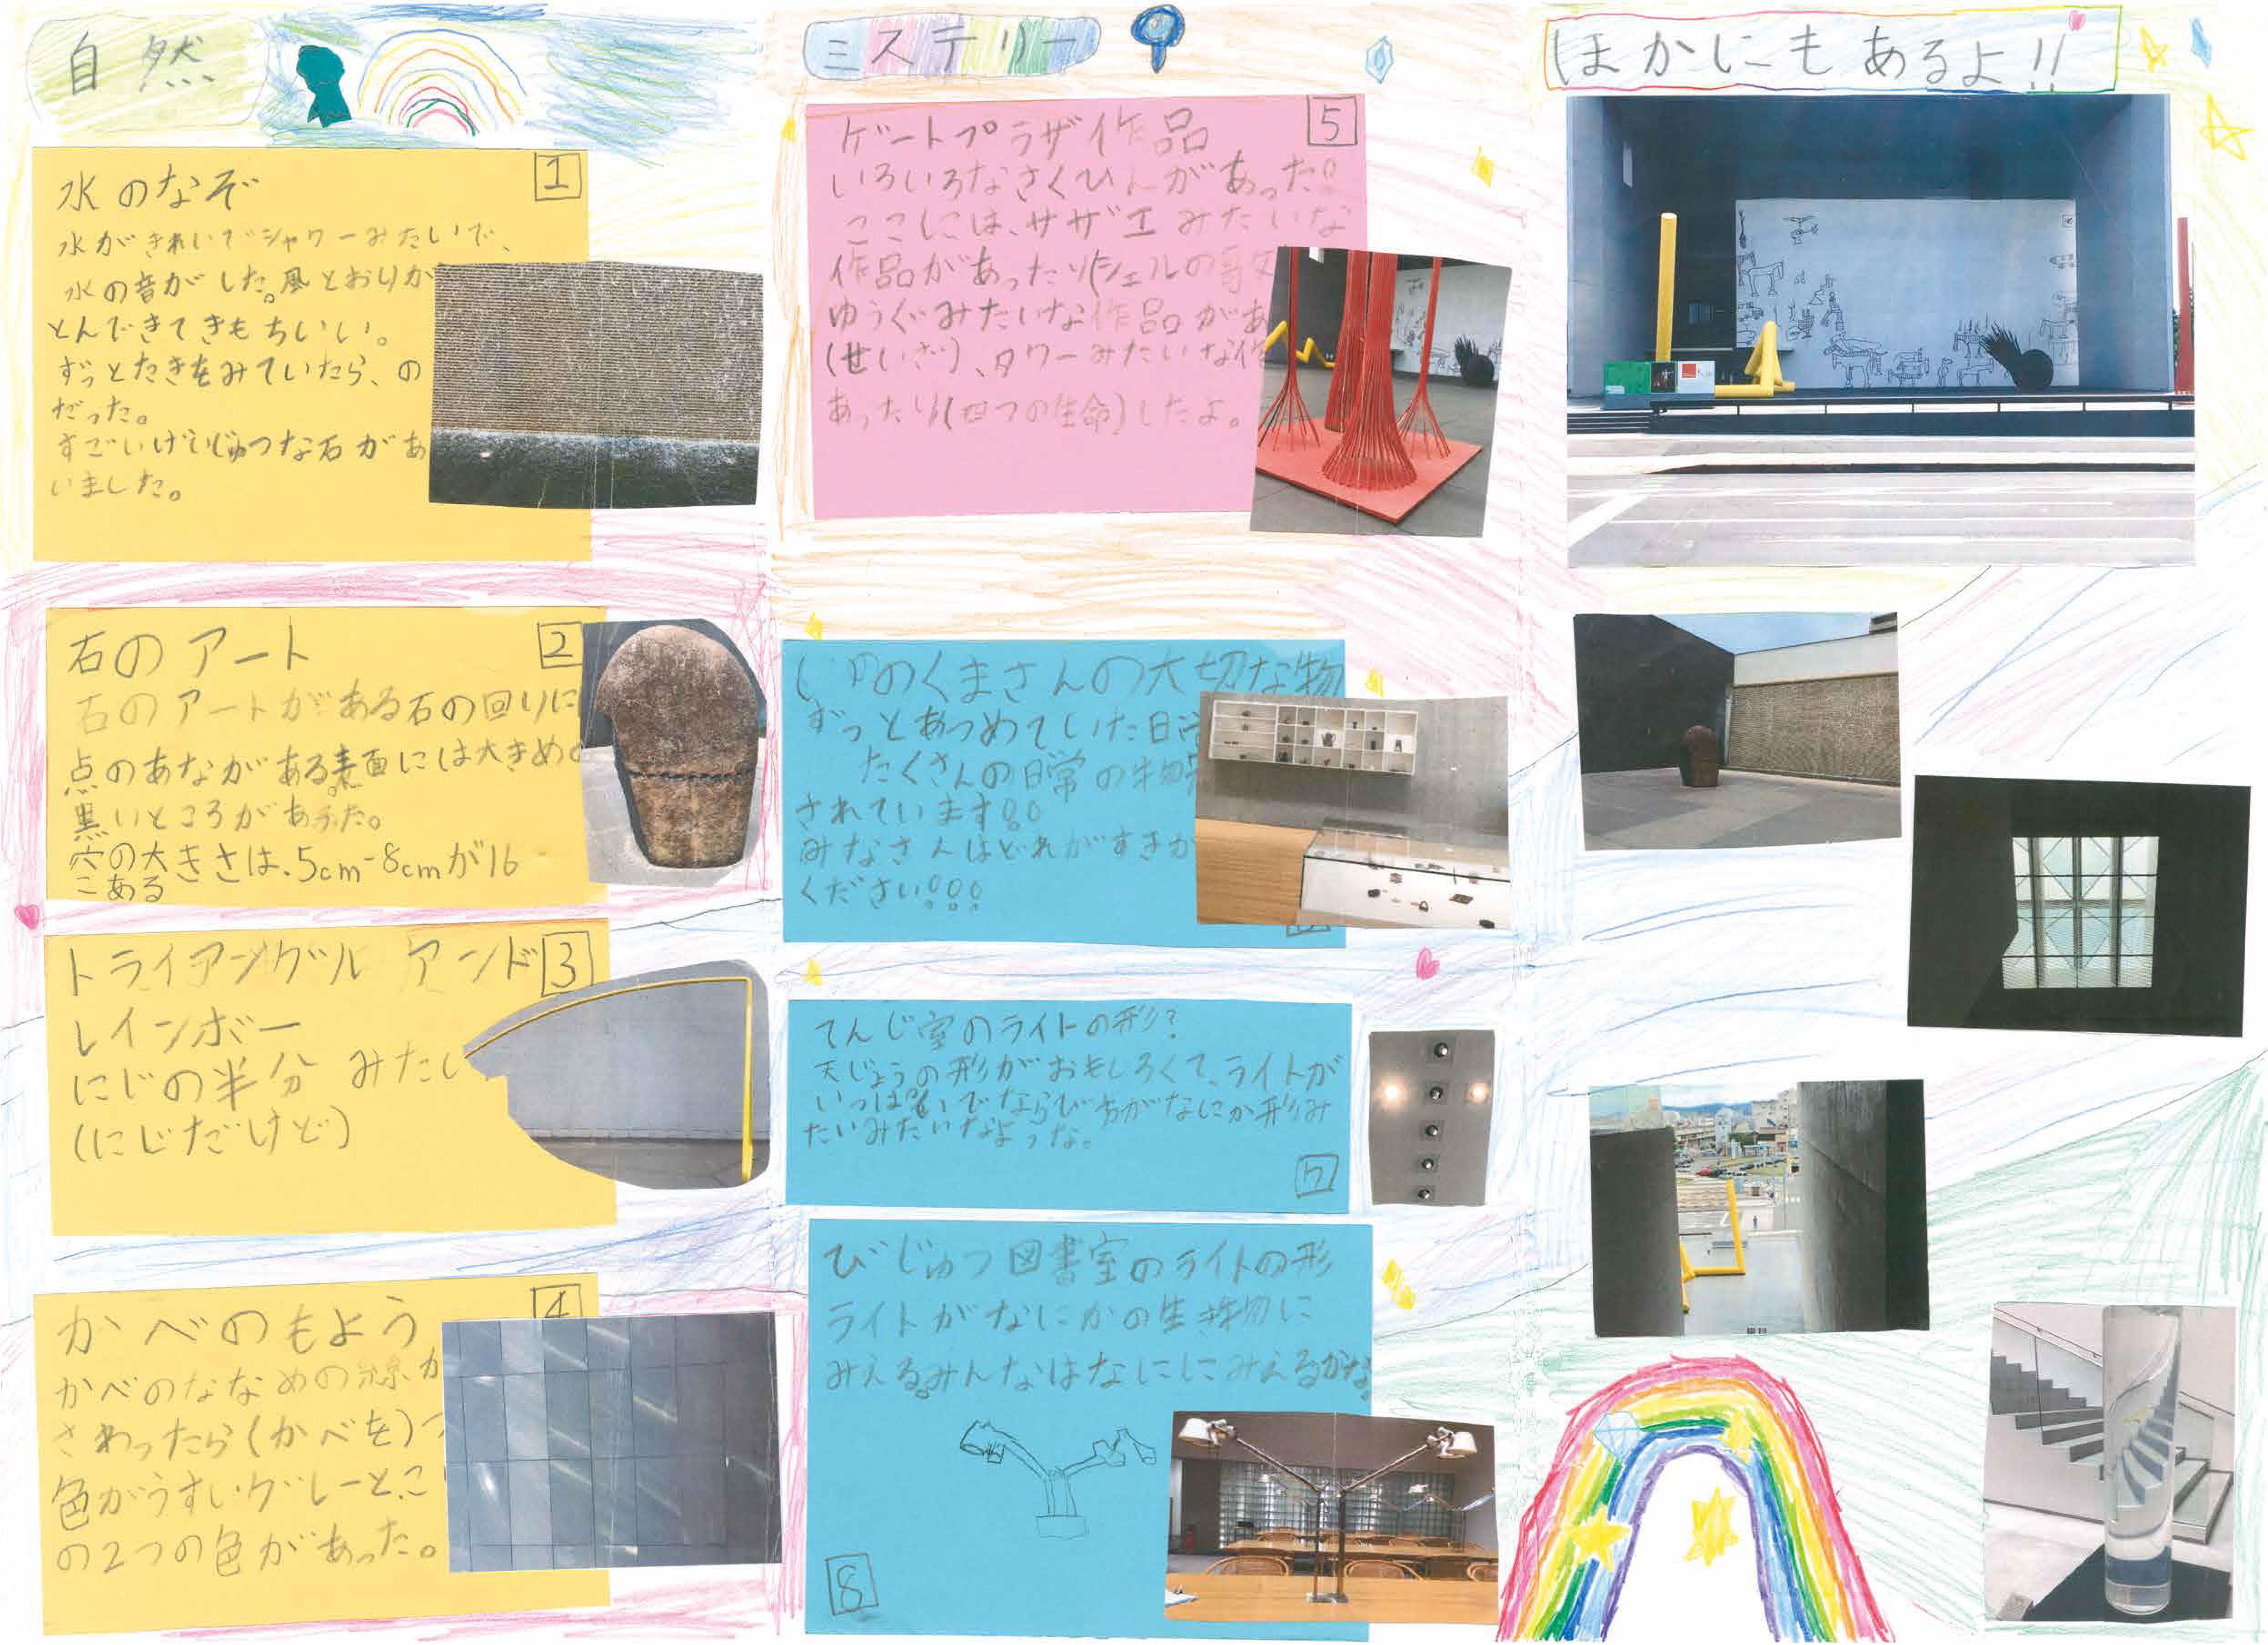 自然
1
水のなぞ
水がきれいでシャワーみたいで、
水の音がした。風とおりが
とんできてきもちいい。
ずっとたきをみていたら、の
だった。
すごいげいじゅつな石があ
いました。
2
石のアート
石のアートがある石の回りに
点のあながある。表面には大きめの
黒いところがあった。
穴の大きさは.5cm-8cmが16
こある
トライアングル アンド 3
レインボー
にじの半分 みたい
(にじだけど)
4
かべのもよう
かべのななめの線が
さわったら(かべを)つ
色がうすいグレーと、こ
の2つの色があった。
ミステリー
5
ゲートプラザ作品
いろいろなさくひんがあった!
ここには、サザエみたいな
作品があったり(シェルの歌
ゆうぐみたいな作品があ
(せいざ)、タワーみたいな作
あったり(四つの生命)したよ。
いのくまさんの大切な物
ずっとあつめていた日常
たくさんの日常の物
されています!!
みなさんはどれがすきか
ください!!!
てんじ室のライトの形?
天じょうの形がおもしろくて、ライトが
いっぱいでならび方がなにか形み
たいみたいなような。
7
びじゅつ図書室のライトの形
ライトがなにかの生き物に
みえる。みんなはなににみえるかな。
8
ほかにもあるよ!!